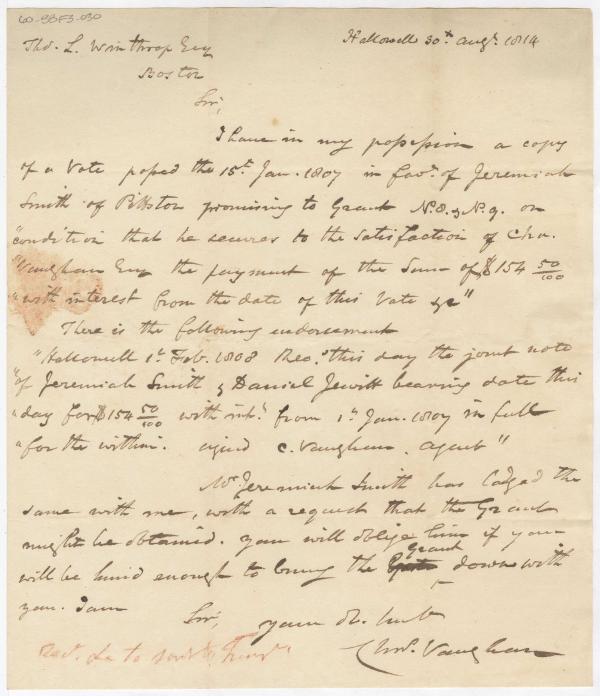 60-SBF3-030
Hallowell 30th Augt. 1814
Tho. L. Winthrop Esq
Boston
Sir,
I have in my possession a copy
of a Vote passed the 15th Jan. 1807 in favr. of Jeremiah
Smith of Pittston promising to Grant N.8. & N.9. on
"condition that he secures to the satisfaction of Cha.
"Vaughan Esq the payment of the Sum of $154 50/100
"with interest from the date of this Vote &c"
There is the following endorsement
"Hallowell 1st Feb. 1808 Recd. this day the joint note
"of Jeremiah Smith & Daniel Jewitt bearing date this
"day for $154 50/100 with intt. from 1st Jan. 1807 in full
"for the within. signd C. Vaughan. Agent"
Mr. Jeremiah Smith has lodged the
same with me, with a request that the Grant
might be obtained. You will oblige him if you
will be kind enough to bring the Grant down with
you. I am
Sir,
your ob. servt
Chas. Vaughan